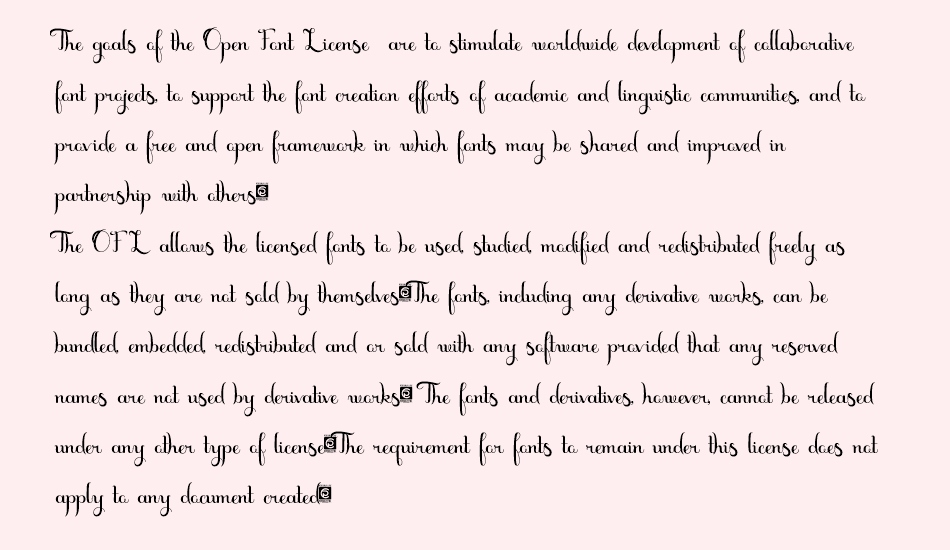 The goals of the Open Font License are to stimulate worldwide development of collaborative
font projects, to support the font creation efforts of academic and linguistic communities, and to
provide a free and open framework in which fonts may be shared and improved in
partnership with others
The OFL allows the licensed fonts to be used, studied, modified and redistributed freely as
long as they are not sold by themselves The fonts, including any derivative works, can be
bundled, embedded, redistributed and or sold with any software provided that any reserved
names are not used by derivative works The fonts and derivatives, however, cannot be released
under any other type of license The requirement for fonts to remain under this license does not
apply to any document created